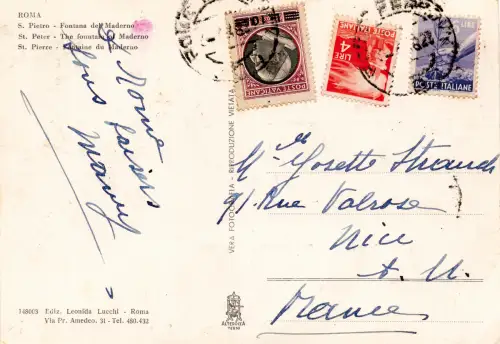 ROMA
S. Pietro - Fontana del Maderno
St. Peter - The fountain of Maderno
St. Pierre - Fontaine de Maderno
10
POSTE VATICANE
LIRE 4
POSTE ITALIANE
LIRE
POSTE ITALIANE
de Rome
bons baisers
VERA FOTOGRAFIA - RIPRODUZIONE VIETATA
Josette
91 Rue Valrose
Nice
A. M.
France
14500N Ediz. Leonida Lucchi - Roma
Via Pr. Amedeo, 31 - Tel. 480.432
ALTEROCCA
TERNI